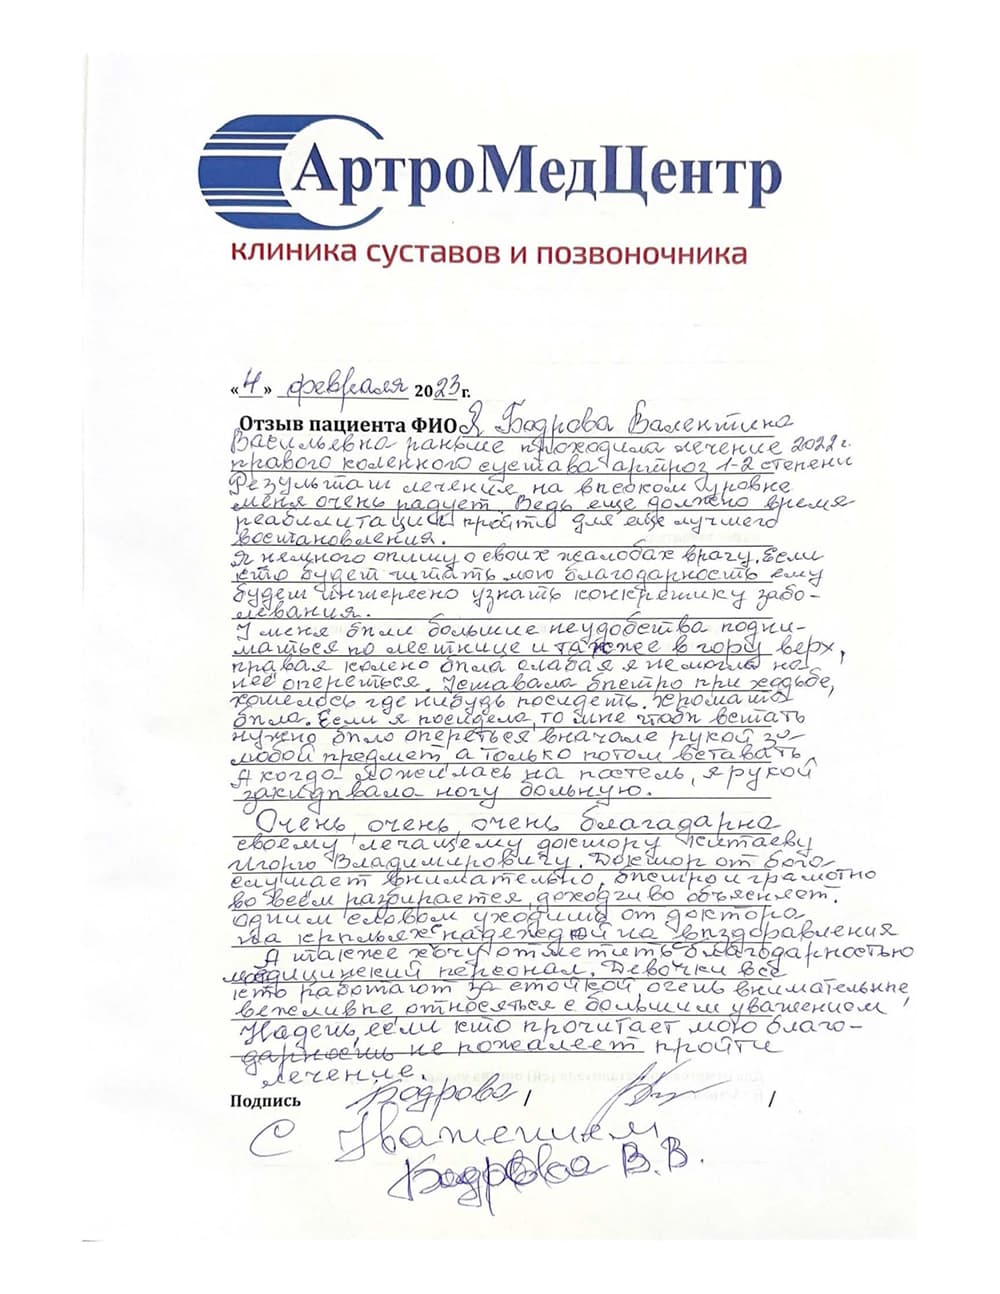 АртроМедЦентр
клиника суставов и позвоночника
«4» февраля 2023 г.
Отзыв пациента ФИО Я Бодрова Валентина
Васильевна раньше проходила лечение 2022 г.
правого коленного сустава артроз 1-2 степени
Результат лечения на высоком уровне
меня очень радует. Ведь еще должно время
реабилитации пройти для еще лучшего
востановления.
Я немного опишу о своих жалобах врачу. Если
кто будет читать мою благодарность ему
будет интересно узнать конкретику забо-
левания.
У меня были большие неудобства подни-
маться по лестнице и также в гору верх,
правая колено была слабая я не могла на
неё опереться. Уставала быстро при ходьбе,
хотелось где нибудь посидеть. Хромата
была. Если я посидела, то мне чтобы встать
нужно было опереться вначале рукой за
любой предмет, а только потом вставать.
А когда ложилась на постель, я рукой
закидывала ногу больную.
Очень, очень, очень благадарна
своему лечащему доктору Китаеву
Игорю Владимировичу. Доктор от бога
слушает внимательно, быстро и грамотно
во всем разбирается, доходчиво объясняет.
Одним словом уходишь от доктора
на крыльях надеждой на выздоравления
А также хочу отметить благодарностью
медицинский персонал. Девочки все
кто работают за стойкой очень внимательные
вежливые, относяться с большим уважением,
Надеюсь, если кто прочитает мою благо-
дарность не пожалеет пройти
лечение.
Подпись Бодрова / /
С Уважением
Бодрова В.В.